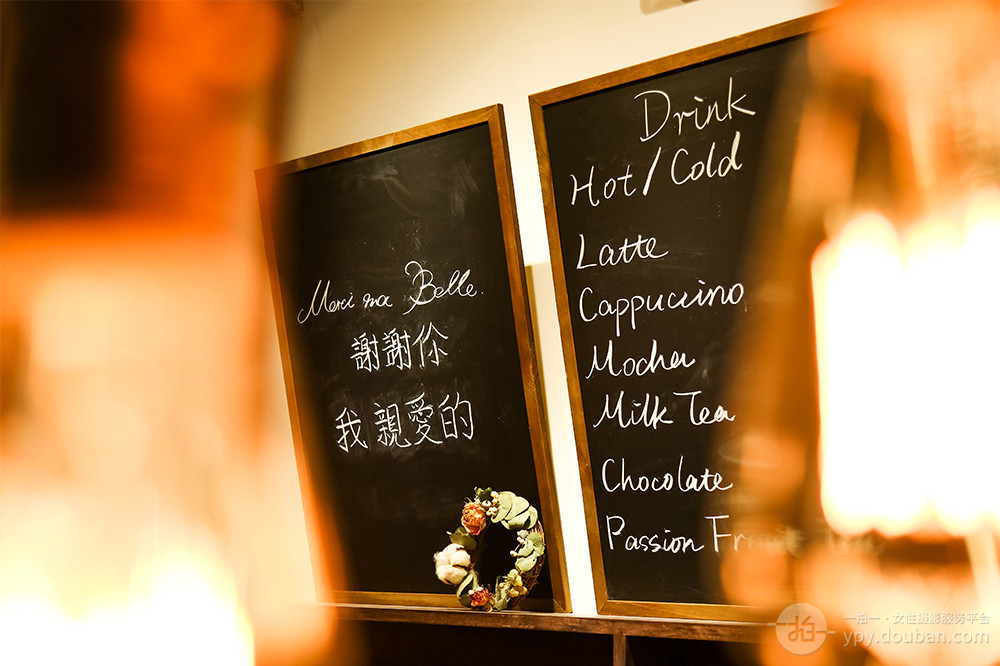 Merci ma Belle.
謝謝你
我親愛的
Drink
Hot/Cold
Latte
Cappuccino
Mocha
Milk Tea
Chocolate
Passion Fruit
一拍一·女性摄影服务平台
一拍一
ypy.douban.com